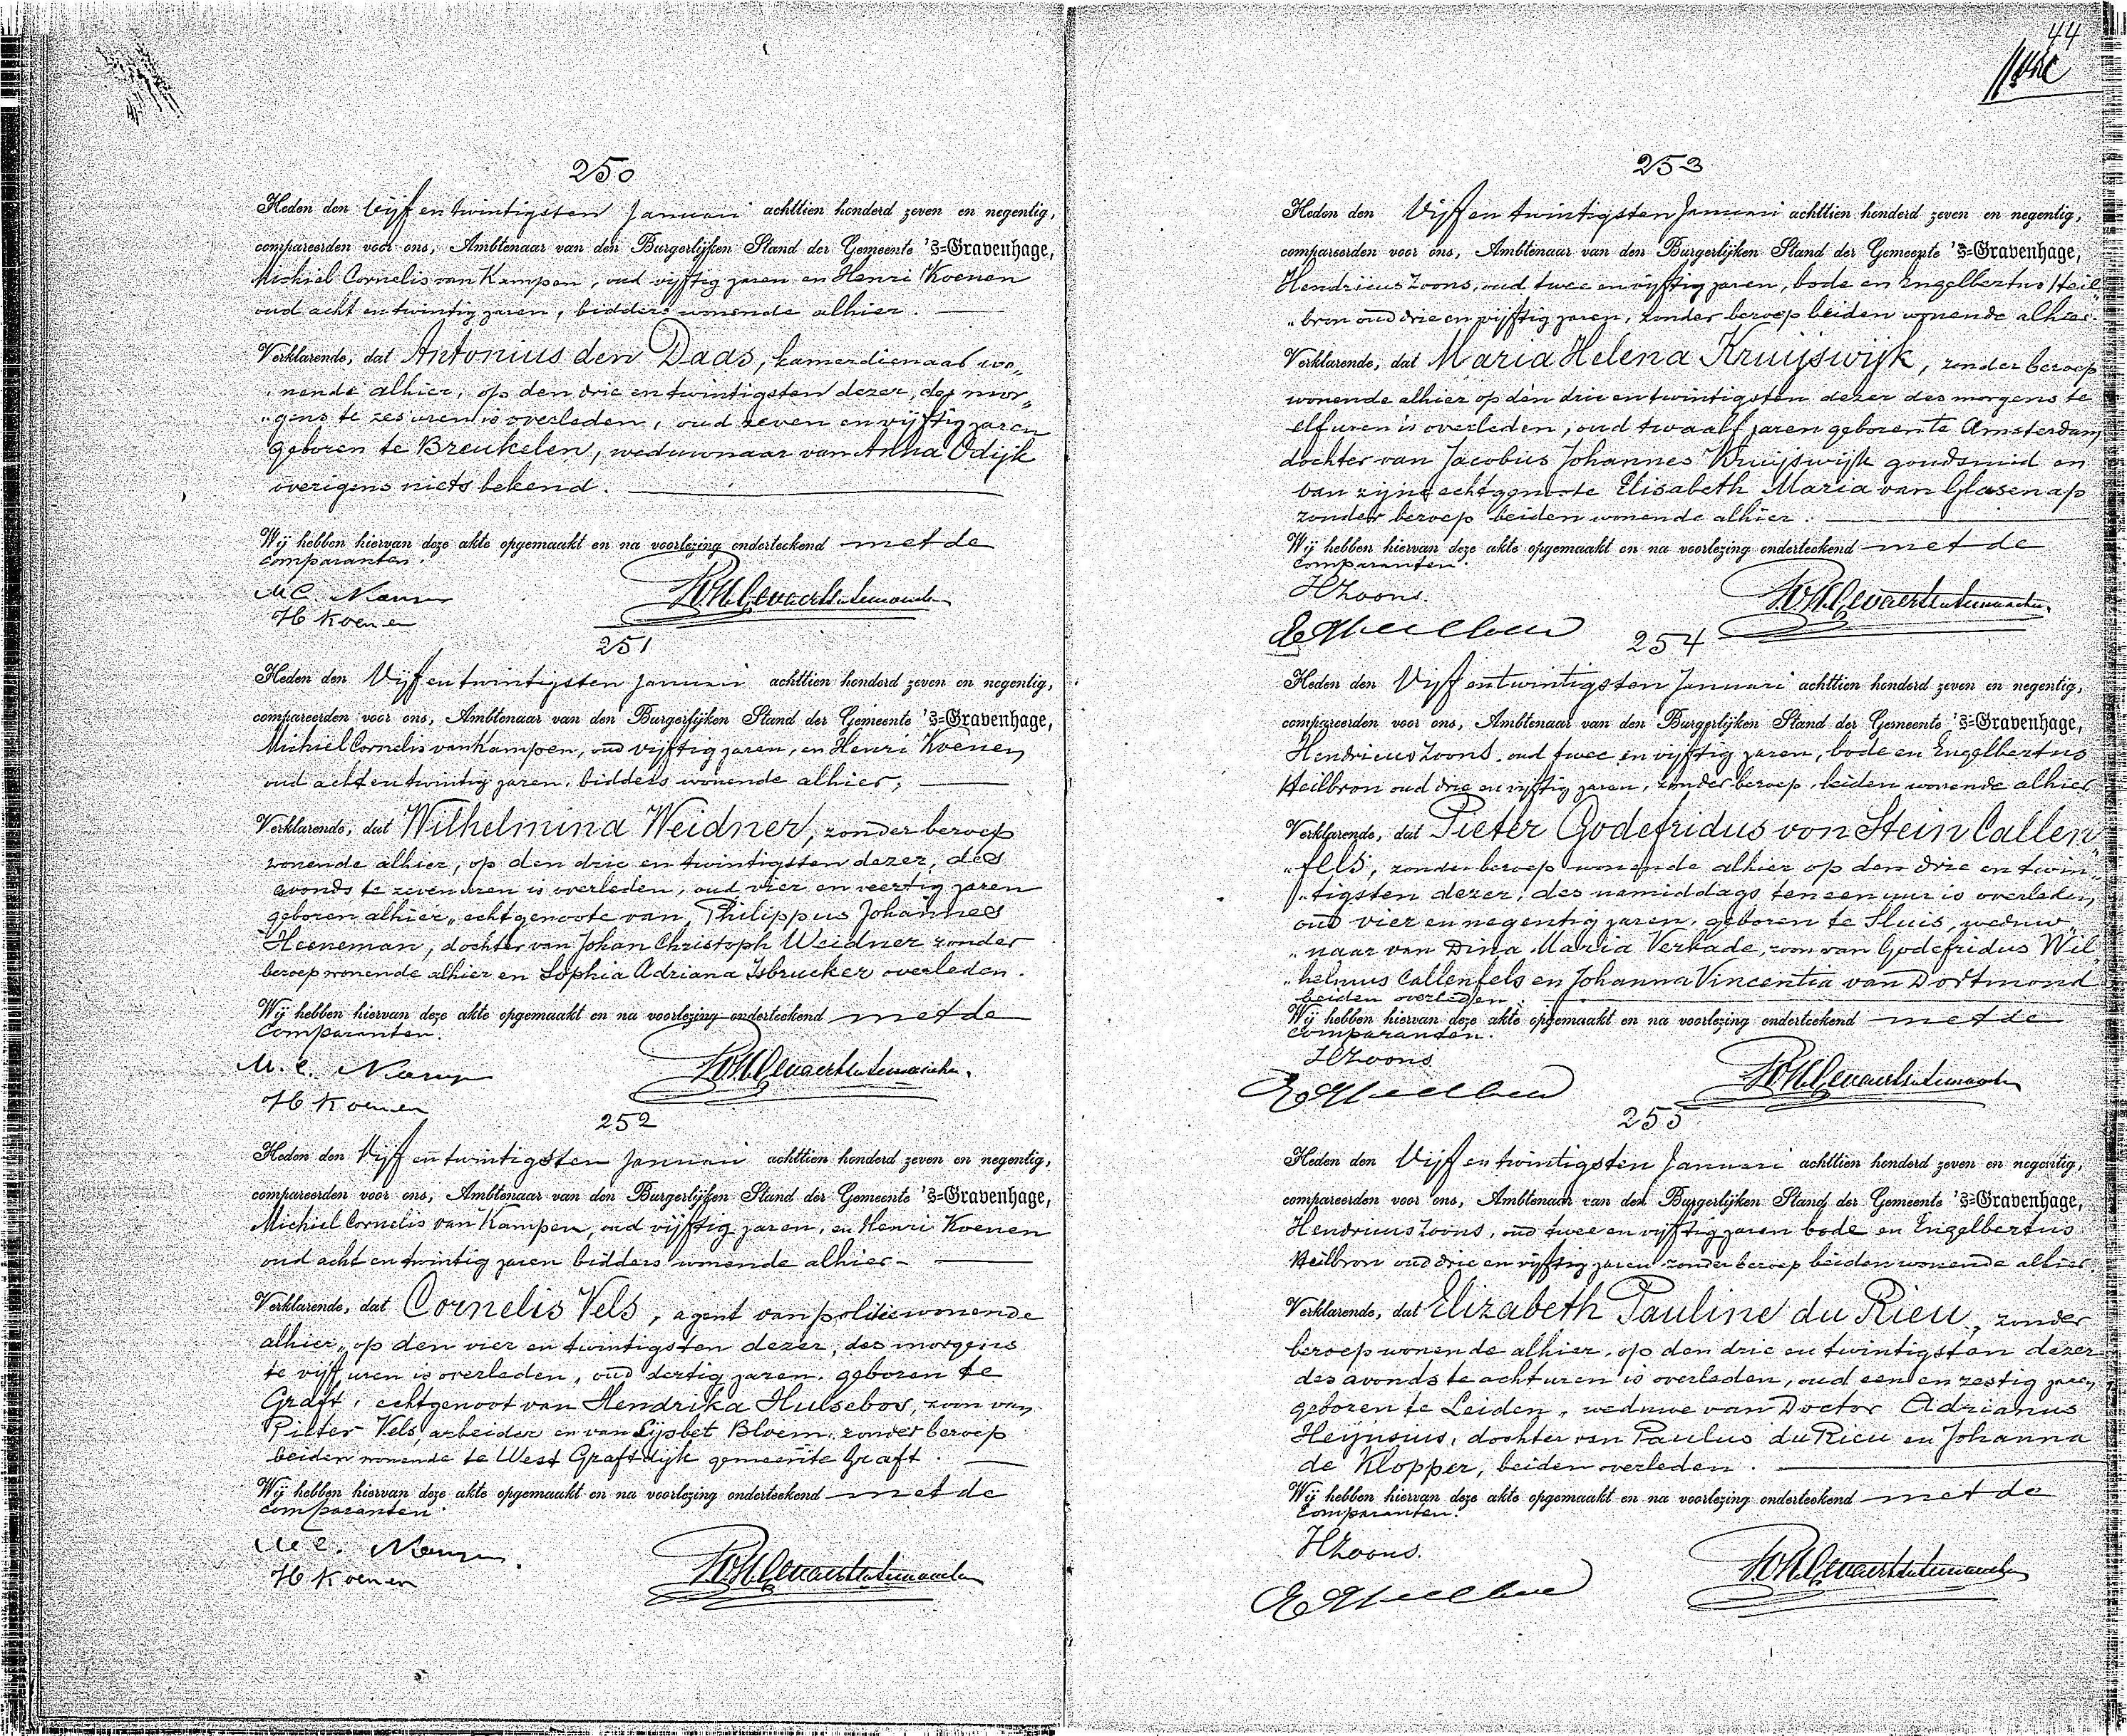 250
Heden den vijf en twintigsten Januari achttien honderd zeven en negentig,
compareerden voor ons, Ambtenaar van den Burgerlijken Stand der Gemeente 's-Gravenhage,
Michiel Cornelis van Kampen, oud vijftig jaren en Henri Koenen
oud acht en twintig jaren, bidders wonende alhier.
Verklarende, dat Antonius den Daas, kamerdienaar wo„
„nende alhier, op den drie en twintigsten dezer, des mor„
„gens te zes uren is overleden, oud zeven en vijftig jaren
geboren te Breukelen, weduwnaar van Anna Odijk
overigens niets bekend.
Wij hebben hiervan deze akte opgemaakt en na voorlezing onderteekend met de
comparanten.
M C.
H Koenen
251
Heden den Vijf en twintigsten Januari achttien honderd zeven en negentig,
compareerden voor ons, Ambtenaar van den Burgerlijken Stand der Gemeente 's-Gravenhage,
Michiel Cornelis van Kampen, oud vijftig jaren, en Henri Koenen
oud acht en twintig jaren, bidders wonende alhier,
Verklarende, dat Wilhelmina Weidner, zonder beroep
wonende alhier, op den drie en twintigsten dezer, des
avonds te zeven uren is overleden, oud vier en veertig jaren
geboren alhier, echtgenoote van Philippus Johannes
Heeneman, dochter van Johan Christoph Weidner zonder
beroep wonende alhier en Sophia Adriana Isbrucker overleden.
Wij hebben hiervan deze akte opgemaakt en na voorlezing onderteekend met de
Comparanten.
M. C.
H Koenen
252
Heden den Vijf en twintigsten Januari achttien honderd zeven en negentig,
compareerden voor ons, Ambtenaar van den Burgerlijken Stand der Gemeente 's-Gravenhage,
Michiel Cornelis van Kampen, oud vijftig jaren, en Henri Koenen
oud acht en twintig jaren bidders wonende alhier
Verklarende, dat Cornelis Vels, agent van politie wonende
alhier, op den vier en twintigsten dezer, des morgens
te vijf uren is overleden, oud dertig jaren. geboren te
Graft, echtgenoot van Hendrika Hulsebos, zoon van
Pieter Vels, arbeider en van Lijsbet Bloem, zonder beroep
beiden wonende te West Graftdijk gemeente Graft.
Wij hebben hiervan deze akte opgemaakt en na voorlezing onderteekend met de
comparanten
M C.
H Koenen
44
253
Heden den Vijf en twintigsten Januari achttien honderd zeven en negentig,
compareerden voor ons, Ambtenaar van den Burgerlijken Stand der Gemeente 's-Gravenhage,
Hendricus Zoons, oud twee en vijftig jaren, bode en Engelbertus Heil„
„bron oud drie en vijftig jaren, zonder beroep beiden wonende alhier.
Verklarende, dat Maria Helena Kruijswijk, zonder beroep
wonende alhier op den drie en twintigsten dezer des morgens te
elf uren is overleden, oud twaalf jaren geboren te Amsterdam,
dochter van Jacobus Johannes Kruijswijk goudsmid en
van zijne echtgenoote Elisabeth Maria van Glasenap
zonder beroep beiden wonende alhier.
Wij hebben hiervan deze akte opgemaakt en na voorlezing onderteekend met de
comparanten.
HZoons.
254
Heden den Vijf en twintigsten Januari achttien honderd zeven en negentig,
compareerden voor ons, Ambtenaar van den Burgerlijken Stand der Gemeente 's-Gravenhage,
Hendricus Zoons, oud twee en vijftig jaren, bode en Engelbertus
Heilbron oud drie en vijftig jaren, zonder beroep, beiden wonende alhier
Verklarende, dat Pieter Godefridus von Stein Callen„
„fels, zonder beroep wonende alhier op den drie en twin„
„tigsten dezer, des namiddags ten een uur is overleden,
oud vier en negentig jaren, geboren te Sluis, weduw„
„naar van Dina Maria Verkade, zoon van Godefridus Wil„
„helmus Callenfels en Johanna Vincentia van Dortmond
beiden overleden.
Wij hebben hiervan deze akte opgemaakt en na voorlezing onderteekend met de
comparanten.
HZoons
255
Heden den Vijf en twintigsten Januari achttien honderd zeven en negentig,
compareerden voor ons, Ambtenaar van den Burgerlijken Stand der Gemeente 's-Gravenhage,
Hendricus Zoons, oud twee en vijftig jaren bode en Engelbertus
Heilbron oud drie en vijftig jaren zonder beroep beiden wonende alhier.
Verklarende, dat Elizabeth Pauline du Rieu, zonder
beroep wonende alhier, op den drie en twintigsten dezer
des avonds te acht uren is overleden, oud een en zestig jaren,
geboren te Leiden, weduwe van Doctor Adrianus
Heijnsius, dochter van Paulus du Rieu en Johanna
de Klopper, beiden overleden.
Wij hebben hiervan deze akte opgemaakt en na voorlezing onderteekend met de
Comparanten.
HZoons.